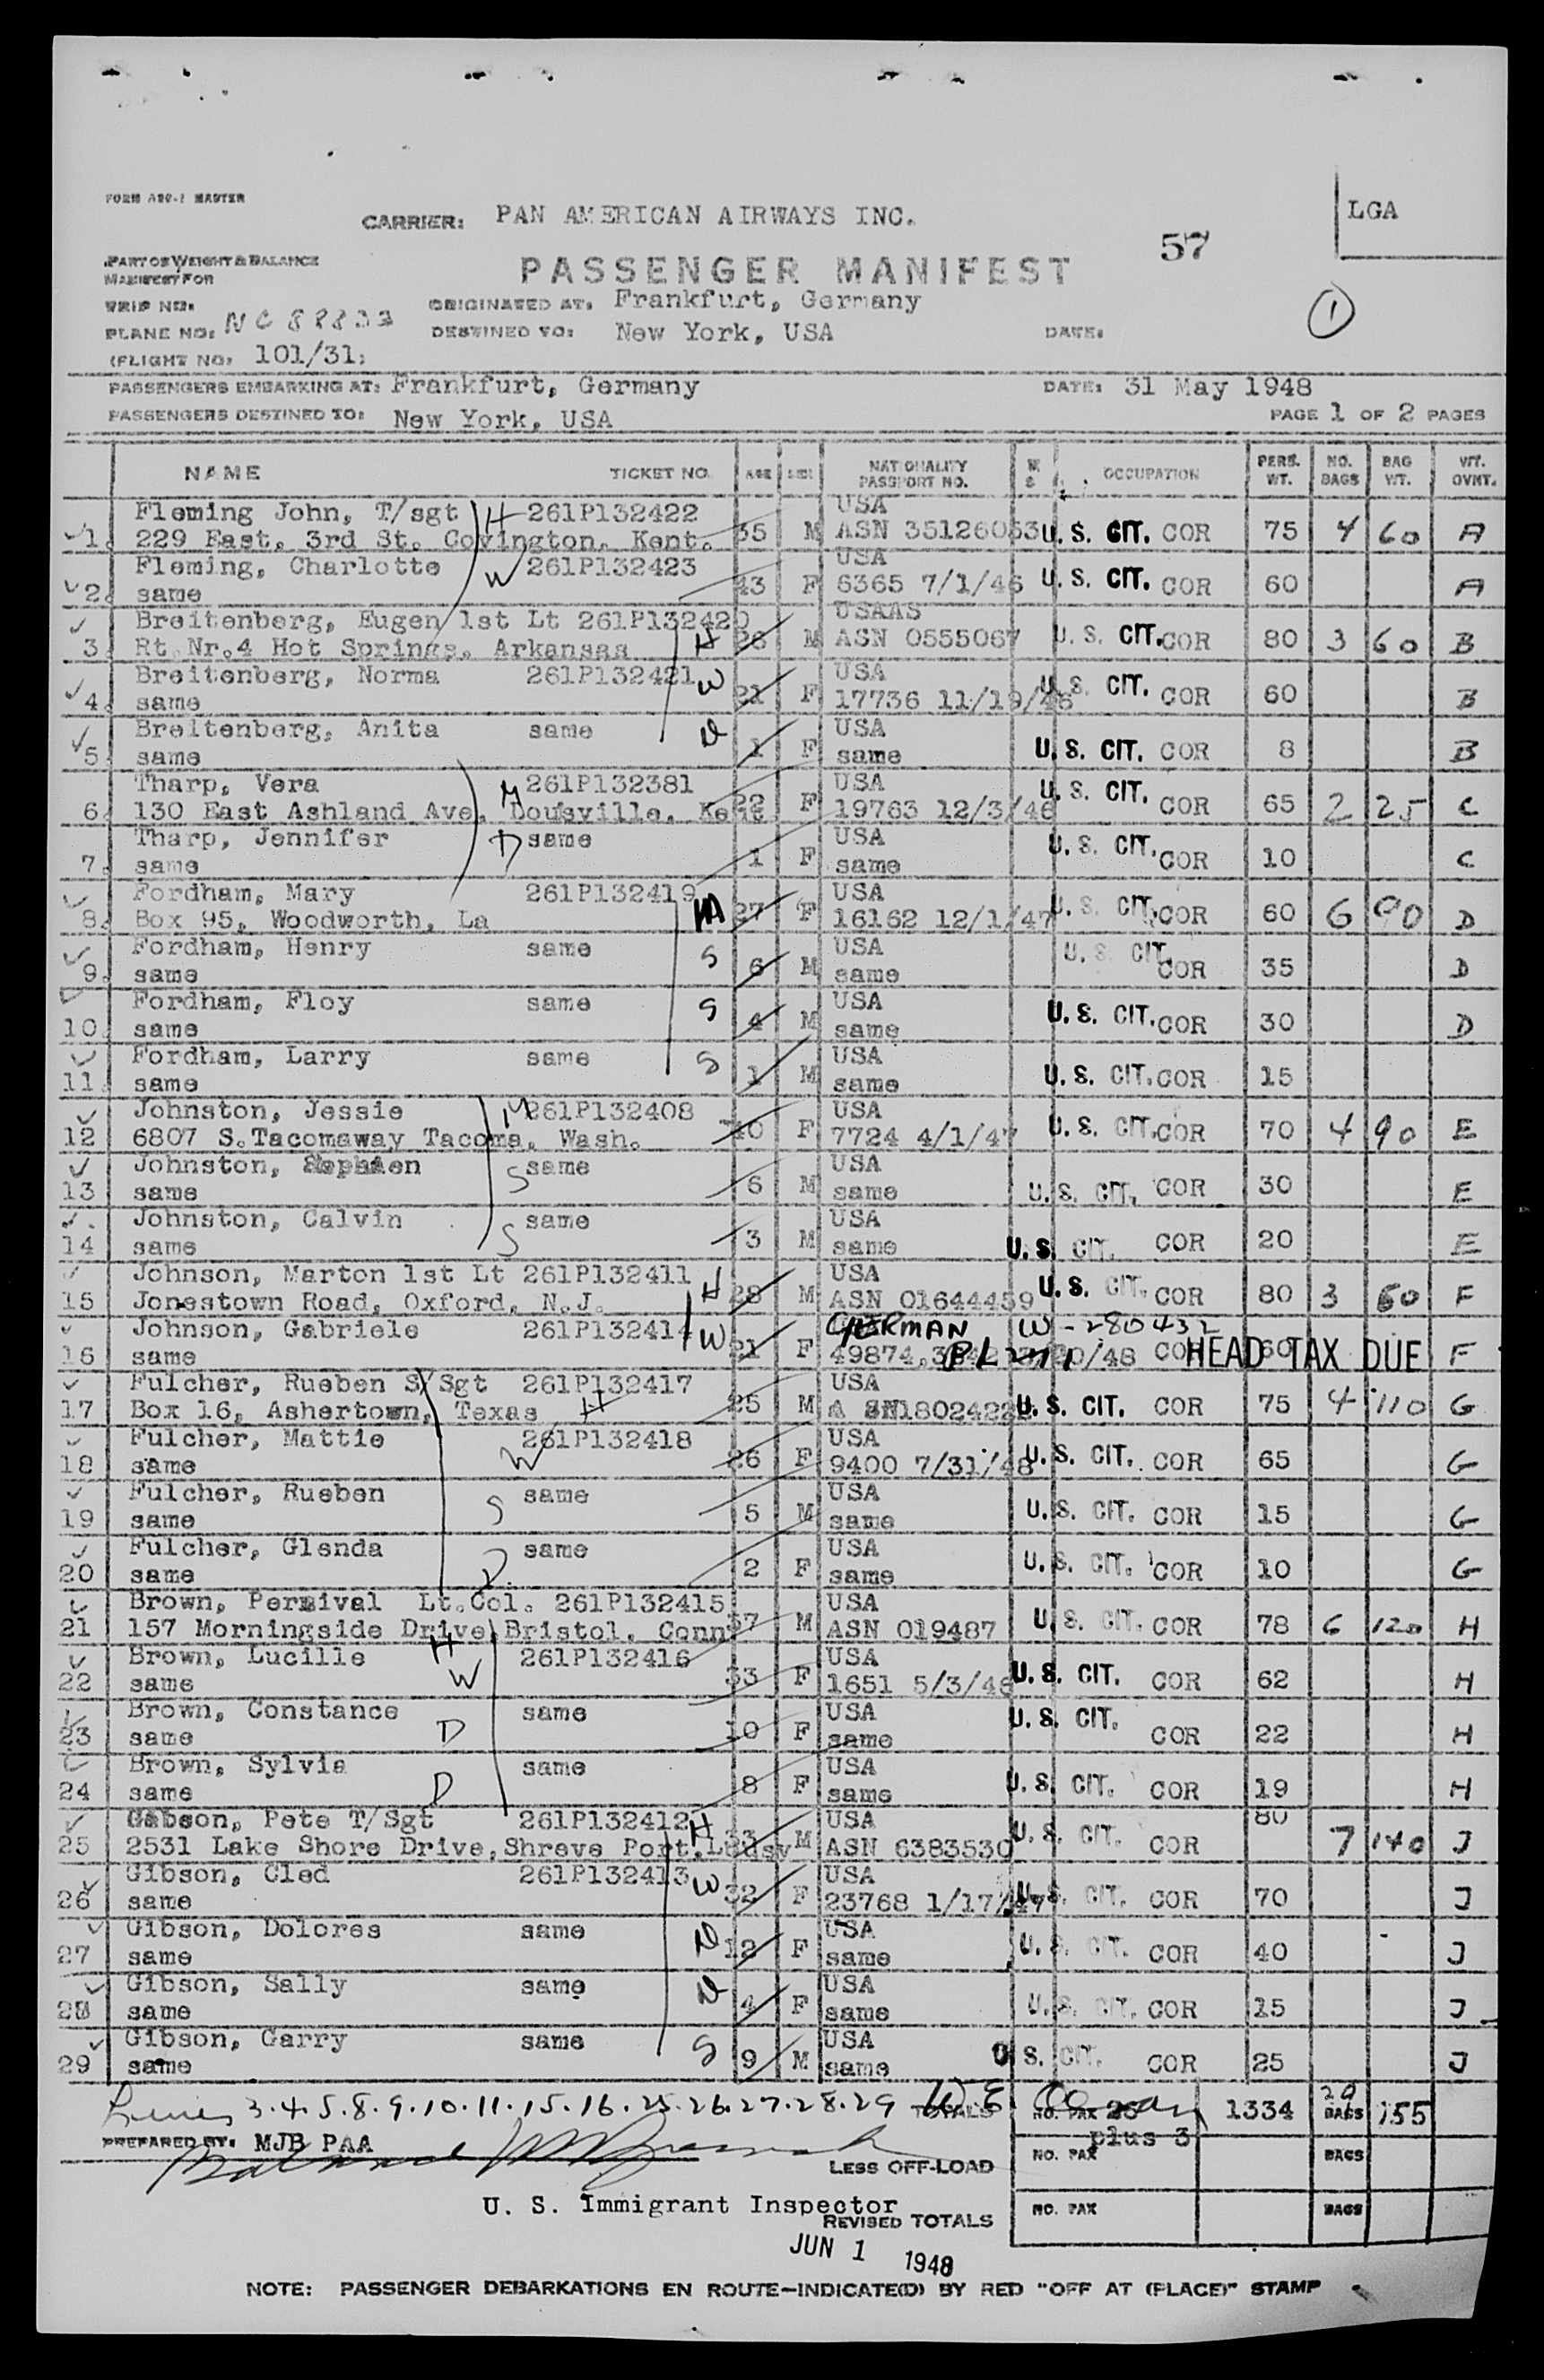 FORM ABO-1 MASTER
CARRIER: PAN AMERICAN AIRWAYS INC.
LGA
57
PART OF WEIGHT & BALANCE
MANIFEST FOR
PASSENGER MANIFEST
TRIP NO.
ORIGINATED AT: Frankfurt, Germany
1
PLANE NO: NC 88833
DESTINED TO: New York, USA
DATE:
(FLIGHT NO: 101/31;
PASSENGERS EMBARKING AT: Frankfurt, Germany DATE: 31 May 1948
PASSENGERS DESTINED TO: New York, USA PAGE 1 OF 2 PAGES
NAME TICKET NO. AGE SEX NATIONALITY PASSPORT NO. OCCUPATION PERS. WT. NO. BAGS BAG WT. VIT. OVNT.
Fleming John, T/sgt H 261P132422 USA
1. 229 East. 3rd St. Covington. Kent. 35 M ASN 35126053 U. S. CIT. COR 75 4 60 A
Fleming, Charlotte W 261P132423 USA
2. same 43 F 6365 7/1/46 U. S. CIT. COR 60 A
Breitenberg, Eugen 1st Lt 261P132420 USAAS
3. Rt.Nr.4 Hot Springs. Arkansas H 26 M ASN 0555067 U. S. CIT. COR 80 3 60 B
Breitenberg, Norma 261P132421 W USA
4. same 21 F 17736 11/19/46 U. S. CIT. COR 60 B
Breitenberg, Anita same D USA
5. same 1 F same U. S. CIT. COR 8 B
Tharp, Vera M 261P132381 USA
6. 130 East Ashland Ave. Louisville. Kent 22 F 19763 12/3/46 U. S. CIT. COR 65 2 25 C
Tharp, Jennifer D same USA
7. same 1 F same U. S. CIT. COR 10 C
Fordham, Mary 261P132419 M USA
8. Box 95, Woodworth, La 27 F 16162 12/1/47 U. S. CIT. COR 60 6 90 D
Fordham, Henry same S USA
9. same 6 M same U. S. CIT. COR 35 D
Fordham, Floy same S USA
10. same 4 M same U. S. CIT. COR 30 D
Fordham, Larry same S USA
11. same 1 M same U. S. CIT. COR 15
Johnston, Jessie M 261P132408 USA
12 6807 S.Tacomaway Tacoma. Wash. 40 F 7724 4/1/47 U. S. CIT. COR 70 4 90 E
Johnston, S same USA
13 same 6 M same U. S. CIT. COR 30 E
Johnston, Calvin S same USA
14 same 3 M same U. S. CIT. COR 20 E
Johnson, Marton 1st Lt 261P132411 H USA
15 Jonestown Road, Oxford, N.J. 28 M ASN 01644459 U. S. CIT. COR 80 3 60 F
Johnson, Gabriele 261P132414 W GERMAN W-280432
16 same 21 F 49874 /48 COR 60 HEAD TAX DUE F
Fulcher, Rueben S/Sgt 261P132417 USA
17 Box 16, Ashertown, Texas H 25 M A SN U. S. CIT. COR 75 4 110 G
Fulcher, Mattie W 261P132418 USA
18 same 26 F 9400 7/31/48 U. S. CIT. COR 65 G
Fulcher, Rueben S same USA
19 same 5 M same U. S. CIT. COR 15 G
Fulcher, Glenda D same USA
20 same 2 F same U. S. CIT. COR 10 G
Brown, Percival Lt.Col. 261P132415 USA
21 157 Morningside Drive Bristol. Conn 37 M ASN 019487 U. S. CIT. COR 78 6 120 H
Brown, Lucille H 261P132416 USA
22 same W 33 F 1651 5/3/46 U. S. CIT. COR 62 H
Brown, Constance same USA
23 same D 10 F same U. S. CIT. COR 22 H
Brown, Sylvia same USA
24 same D 8 F same U. S. CIT. COR 19 H
Gibson, Pete T/Sgt 261P132412 H USA 80
25 2531 Lake Shore Drive, Shreve Port. 33 M ASN 6383530 U. S. CIT. COR 7 140 J
Gibson, Cled 261P132413 W USA
26 same 32 F 23768 1/17/47 U. S. CIT. COR 70 J
Gibson, Dolores same D USA
27 same 12 F same U. S. CIT. COR 40 J
Gibson, Sally same D USA
28 same 4 F same U. S. CIT. COR 15 J
Gibson, Garry same S USA
29 same 9 M same U. S. CIT. COR 25 J
Lines 3.4.5.8.9.10.11.15.16.25.26.27.28.29 W. E. TOTALS NO. PAX 1334 29 BAGS 755
plus 3
PREPARED BY: MJB PAA
LESS OFF-LOAD NO. PAX BAGS
U. S. Immigrant Inspector
REVISED TOTALS NO. PAX BAGS
JUN 1 1948
NOTE: PASSENGER DEBARKATIONS EN ROUTE—INDICATE(D) BY RED "OFF AT (PLACE)" STAMP